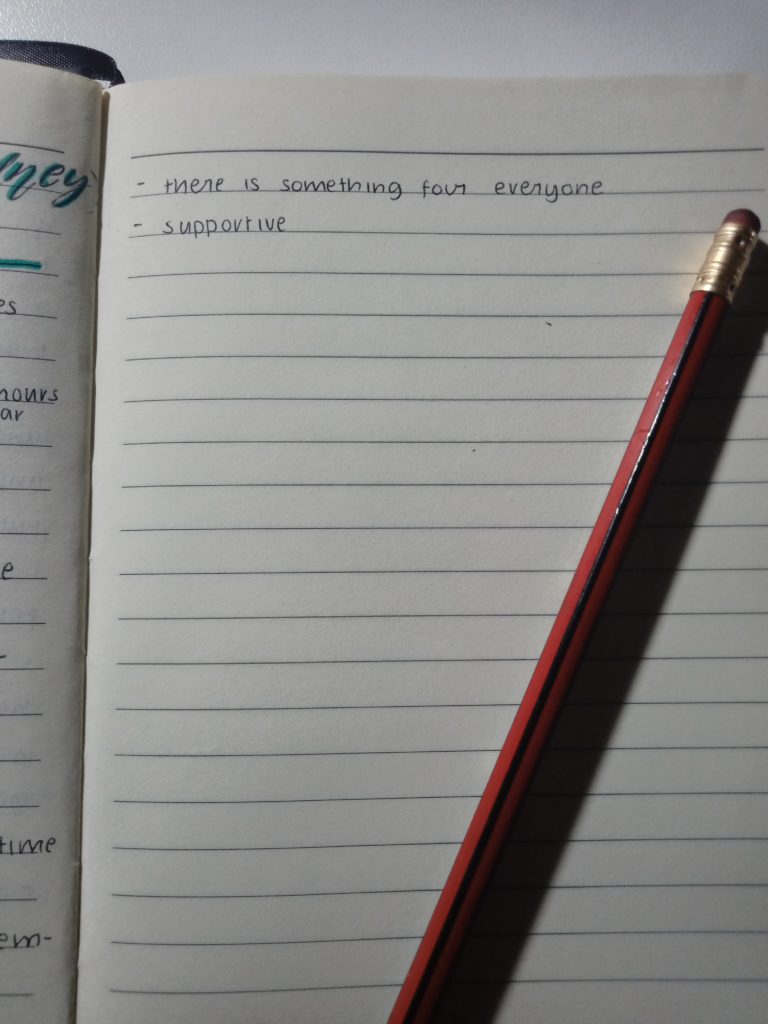 rney
es
hours
ar
e
time
em-
- there is something for everyone
- supportive